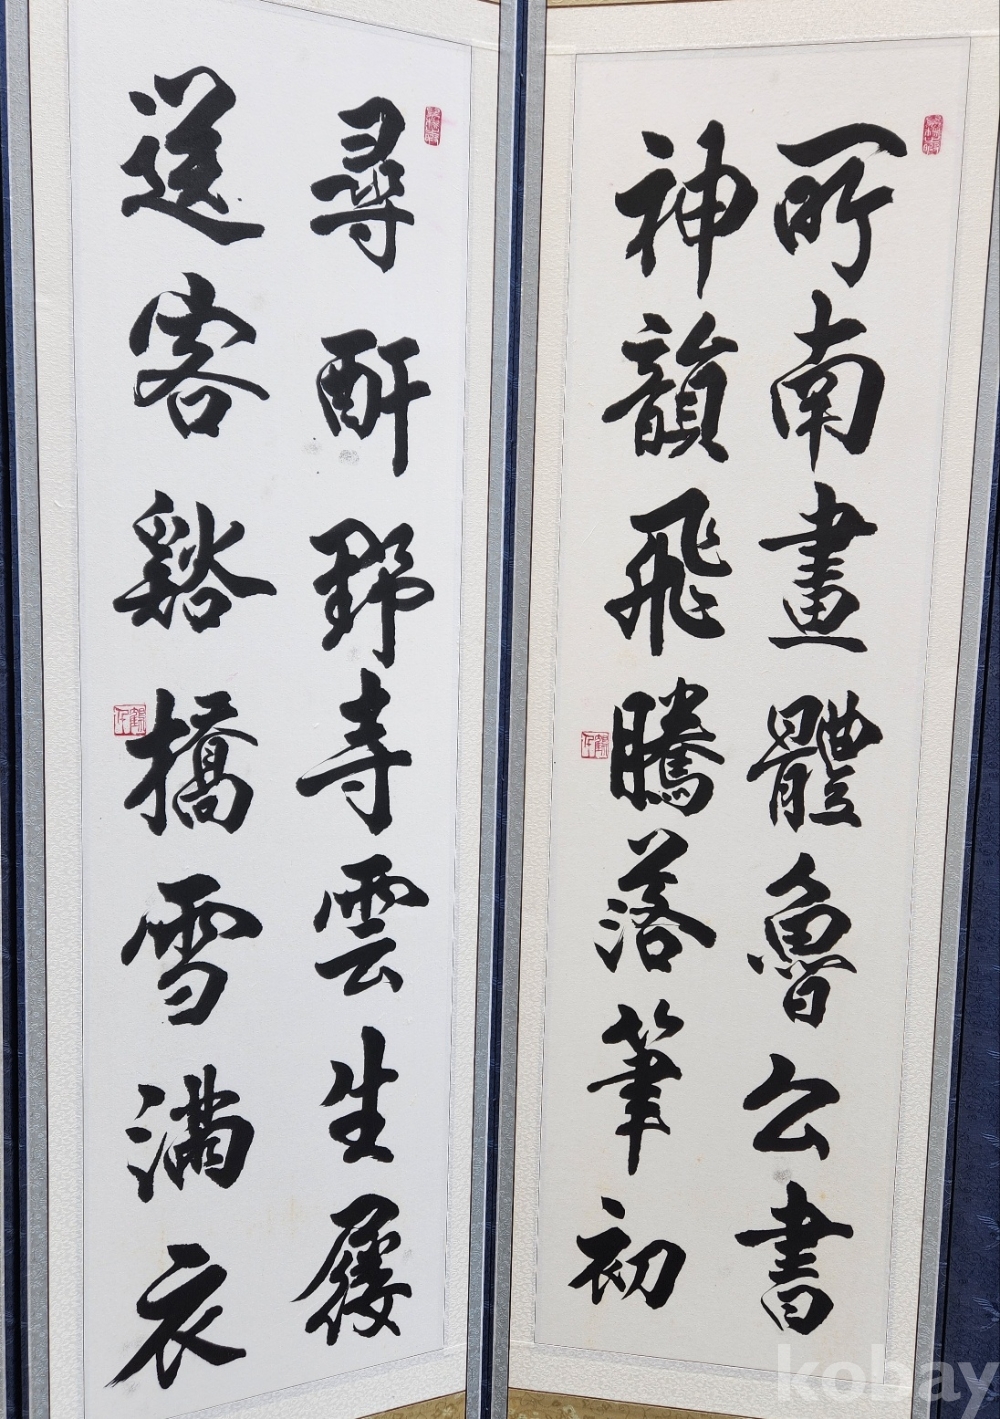 所南畫體魯公書
神韻飛騰落筆初
尋酐野寺雲生屨
送客谿橋雪滿衣
kobay